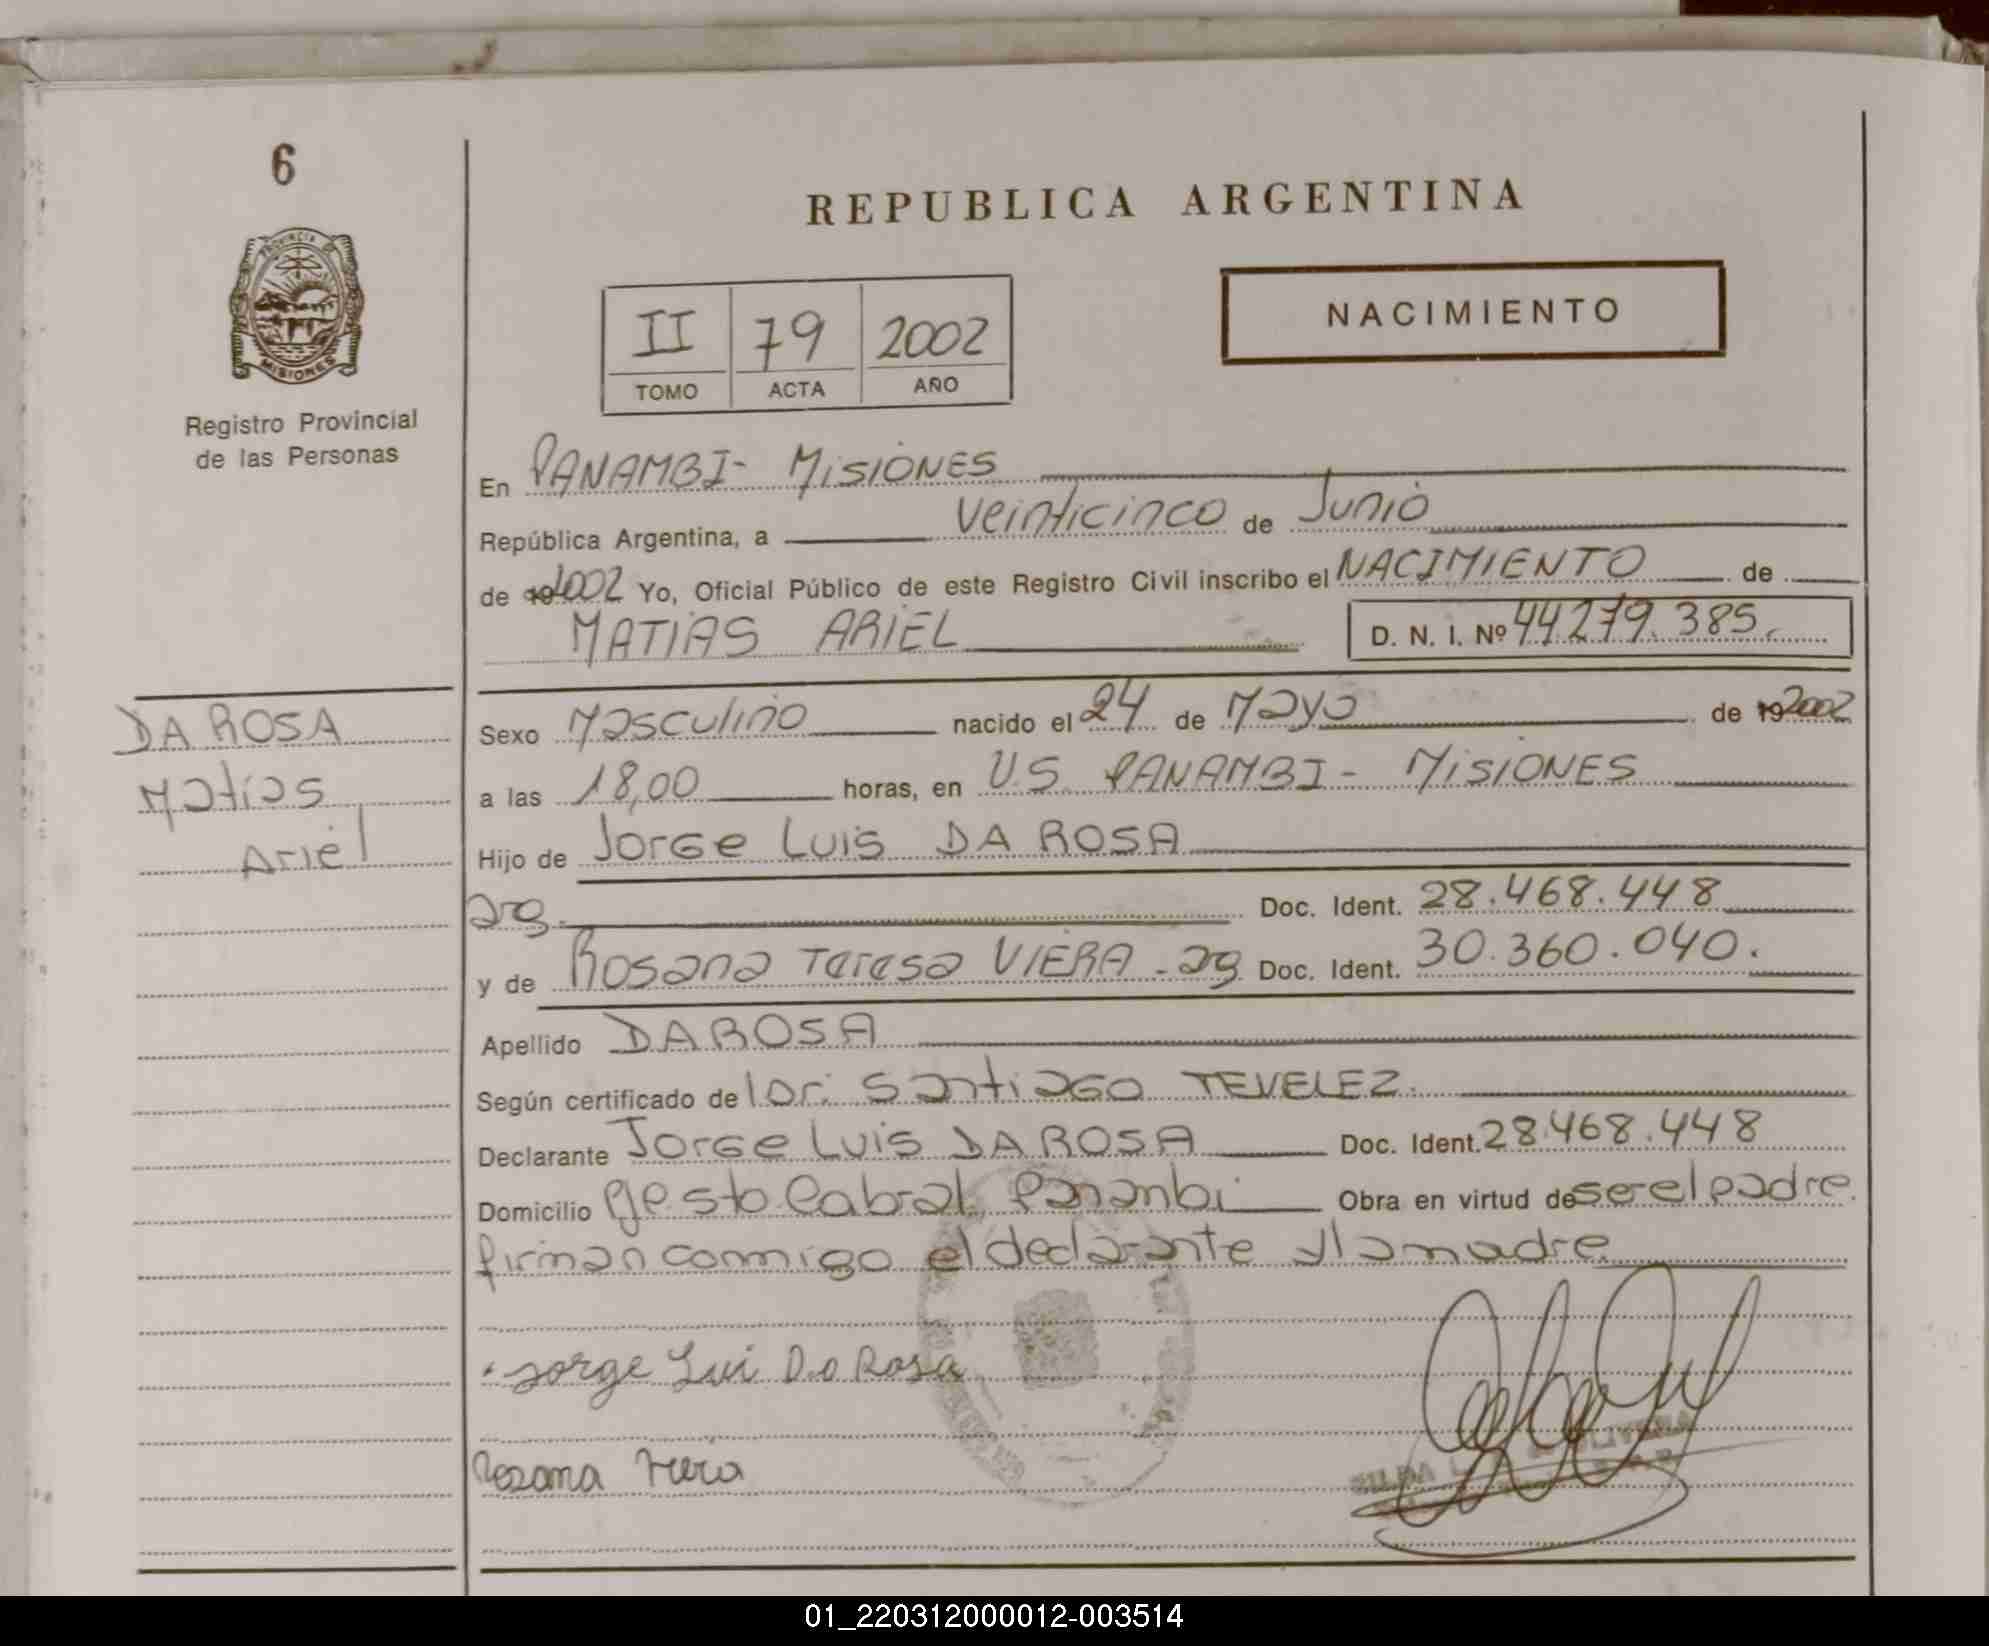 6
REPUBLICA ARGENTINA
PROVINCIA DE
MISIONES
Registro Provincial
de las Personas
II 79 2002
TOMO ACTA AÑO
NACIMIENTO
En PANAMBI - MISIONES
República Argentina, a veinticinco de Junio
de 2002 Yo, Oficial Público de este Registro Civil inscribo el NACIMIENTO de
MATIAS ARIEL D. N. I. Nº 44279.385.
DA ROSA
Matias
Ariel
Sexo Masculino nacido el 24 de Mayo de 19 2002
a las 18,00 horas, en U.S. PANAMBI - MISIONES
Hijo de Jorge Luis DA ROSA
arg. Doc. Ident. 28.468.448
y de Rosana Teresa VIERA - arg Doc. Ident. 30.360.040.
Apellido DA ROSA
Según certificado de Dr. Santiago TEVELEZ.
Declarante Jorge Luis DA ROSA Doc. Ident. 28.468.448
Domicilio Pje sto Cabral Panambi Obra en virtud de ser el padre.
firman conmigo el declarante y la madre
Jorge Lui Da Rosa
Rosana Viera
01_220312000012-003514